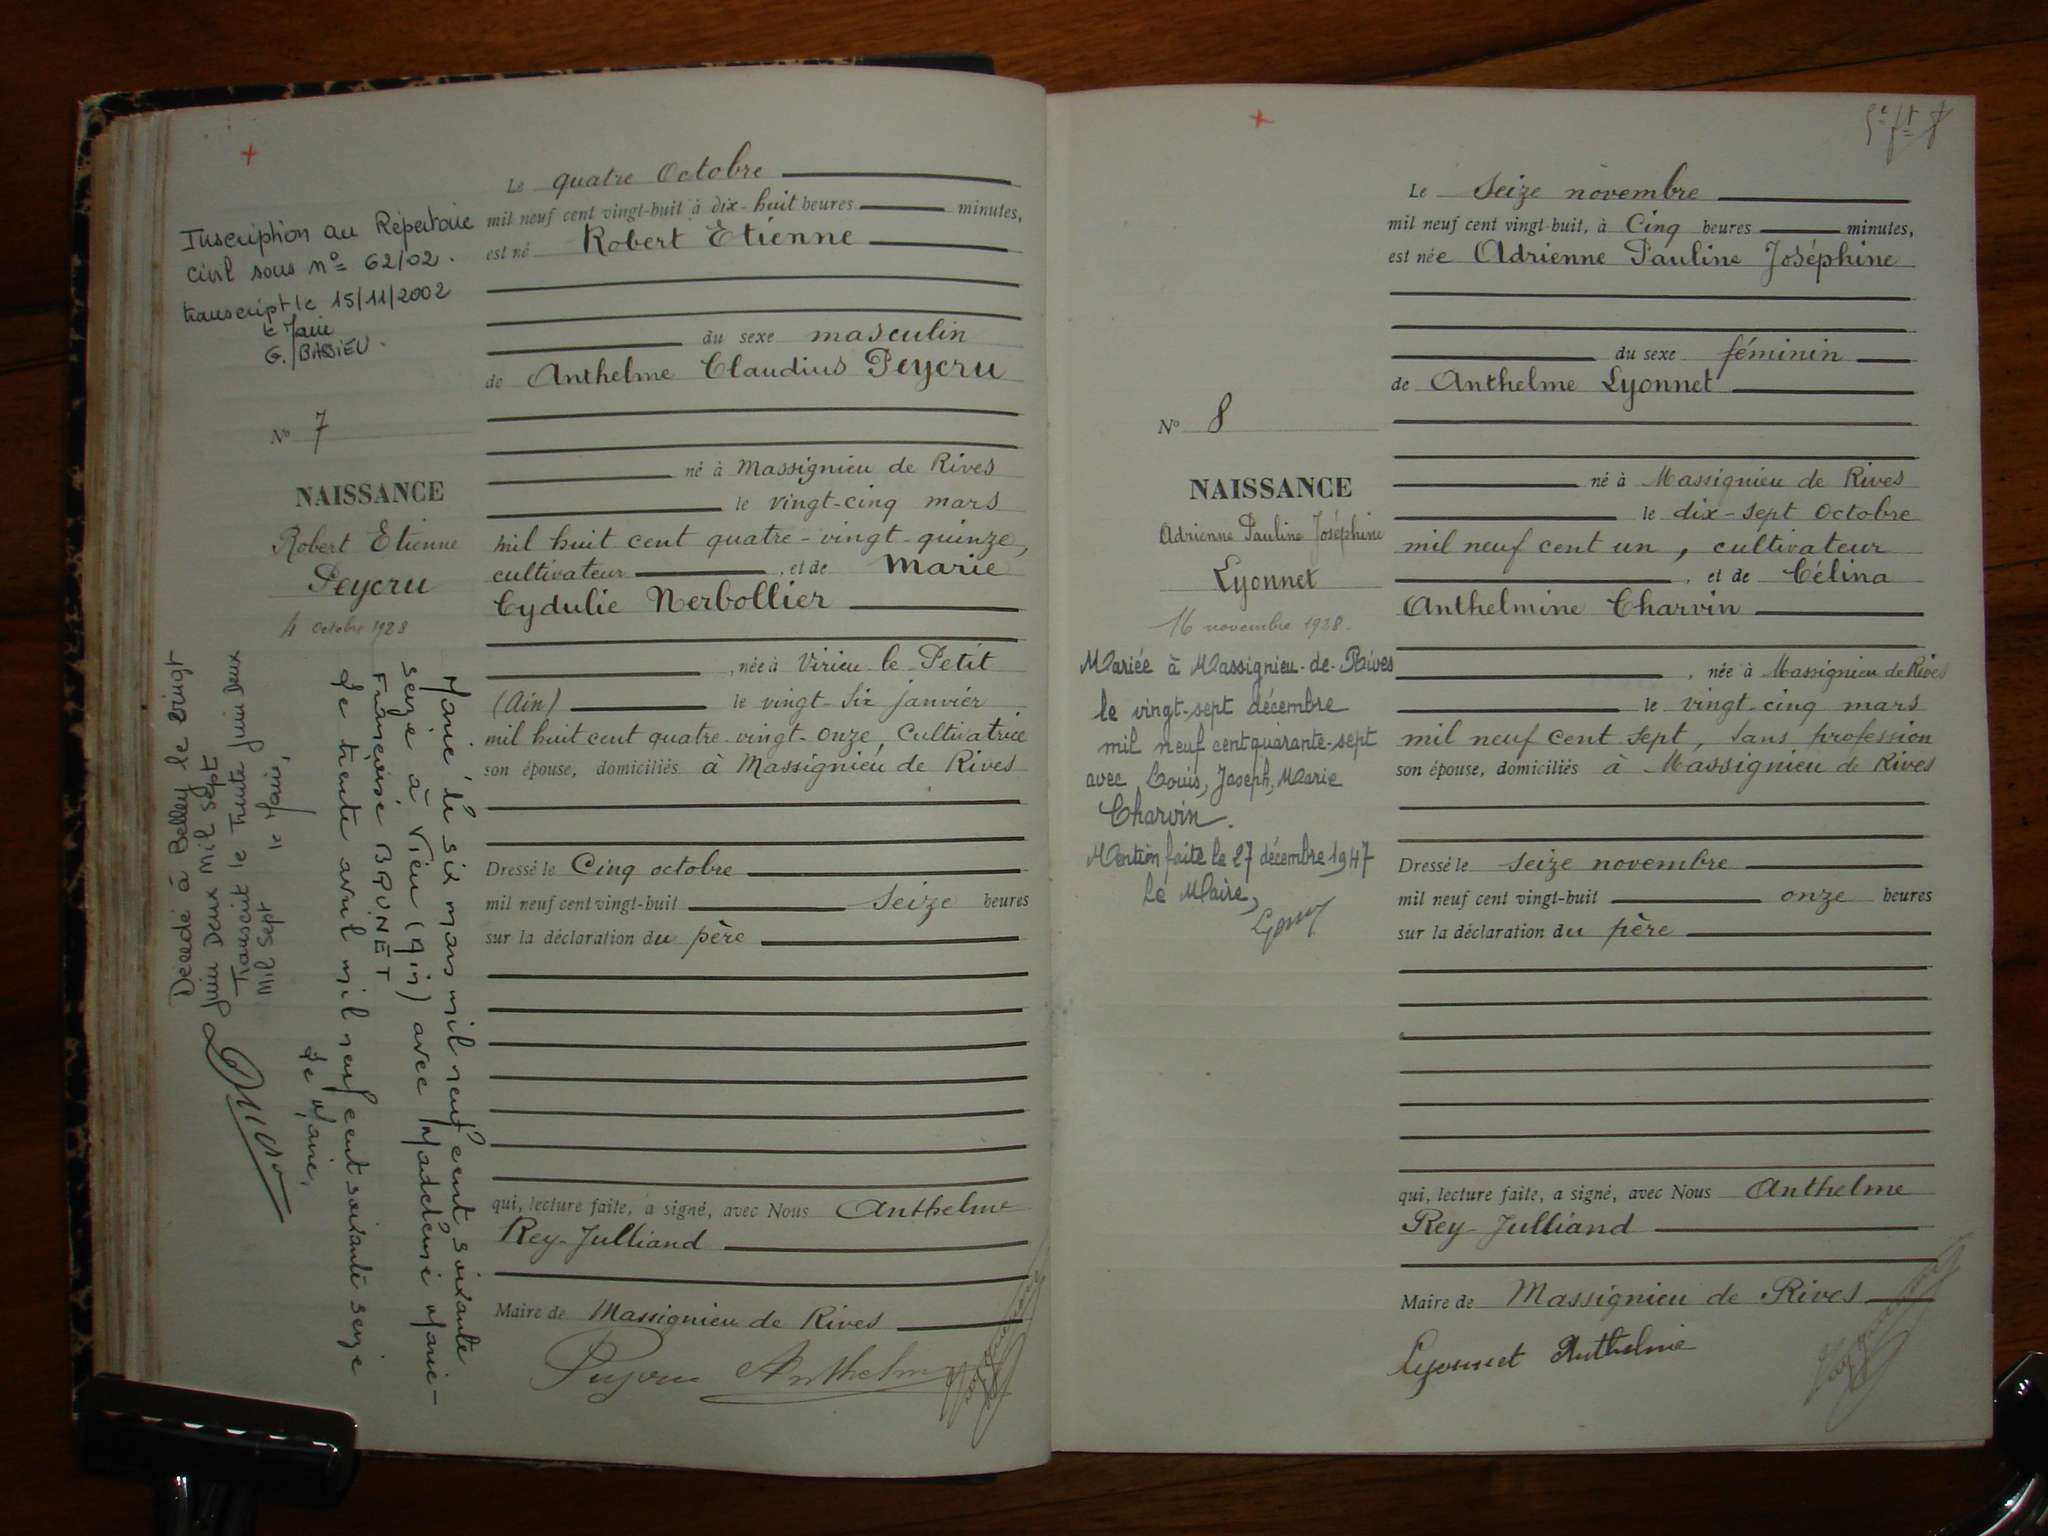 Inscription au Répertoire
Civil sous n° 62/02.
transcript le 15/11/2002
le Maire
G. BASSIEU.
N° 7
NAISSANCE
Robert Etienne
Peycru
4 octobre 1928
Décédé à Belley le vingt
juin Deux mil sept
Transcrit le Trente juin Deux
Mil Sept le Maire,
Marié le six mars mil neuf cent soixante
seize à Vieu (Ain) avec Madeleine Marie-
Françoise BRUNET
Le trente avril mil neuf cent soixante seize
Le Maire,
Le quatre Octobre
mil neuf cent vingt-huit à dix-huit heures minutes,
est né Robert Etienne
du sexe masculin
de Anthelme Claudius Peycru
né à Massignieu de Rives
le vingt-cinq mars
mil huit cent quatre-vingt-quinze,
cultivateur, et de Marie
Cydulie Nerbollier
, née à Virieu le Petit
(Ain) le vingt-six janvier
mil huit cent quatre-vingt-onze, Cultivatrice
son épouse, domiciliés à Massignieu de Rives
Dressé le Cinq octobre
mil neuf cent vingt-huit seize heures
sur la déclaration du père
qui, lecture faite, a signé, avec Nous Anthelme
Rey-Julliand
Maire de Massignieu de Rives
Peycru Anthelme
N° 8
NAISSANCE
Adrienne Pauline Joséphine
Lyonnet
16 novembre 1928.
Mariée à Massignieu-de-Rives
le vingt-sept décembre
mil neuf cent quarante-sept
avec Louis, Joseph, Marie
Charvin.
Mention faite le 27 décembre 1947
Le Maire,
Le Seize novembre
mil neuf cent vingt-huit, à Cinq heures minutes,
est née Adrienne Pauline Joséphine
du sexe féminin
de Anthelme Lyonnet
né à Massignieu de Rives
le dix-sept Octobre
mil neuf cent un, cultivateur
, et de Célina
Anthelmine Charvin
, née à Massignieu de Rives
le vingt-cinq mars
mil neuf cent sept, sans profession
son épouse, domiciliés à Massignieu de Rives
Dressé le seize novembre
mil neuf cent vingt-huit onze heures
sur la déclaration du père
qui, lecture faite, a signé, avec Nous Anthelme
Rey-Julliand
Maire de Massignieu de Rives
Lyonnet Anthelme